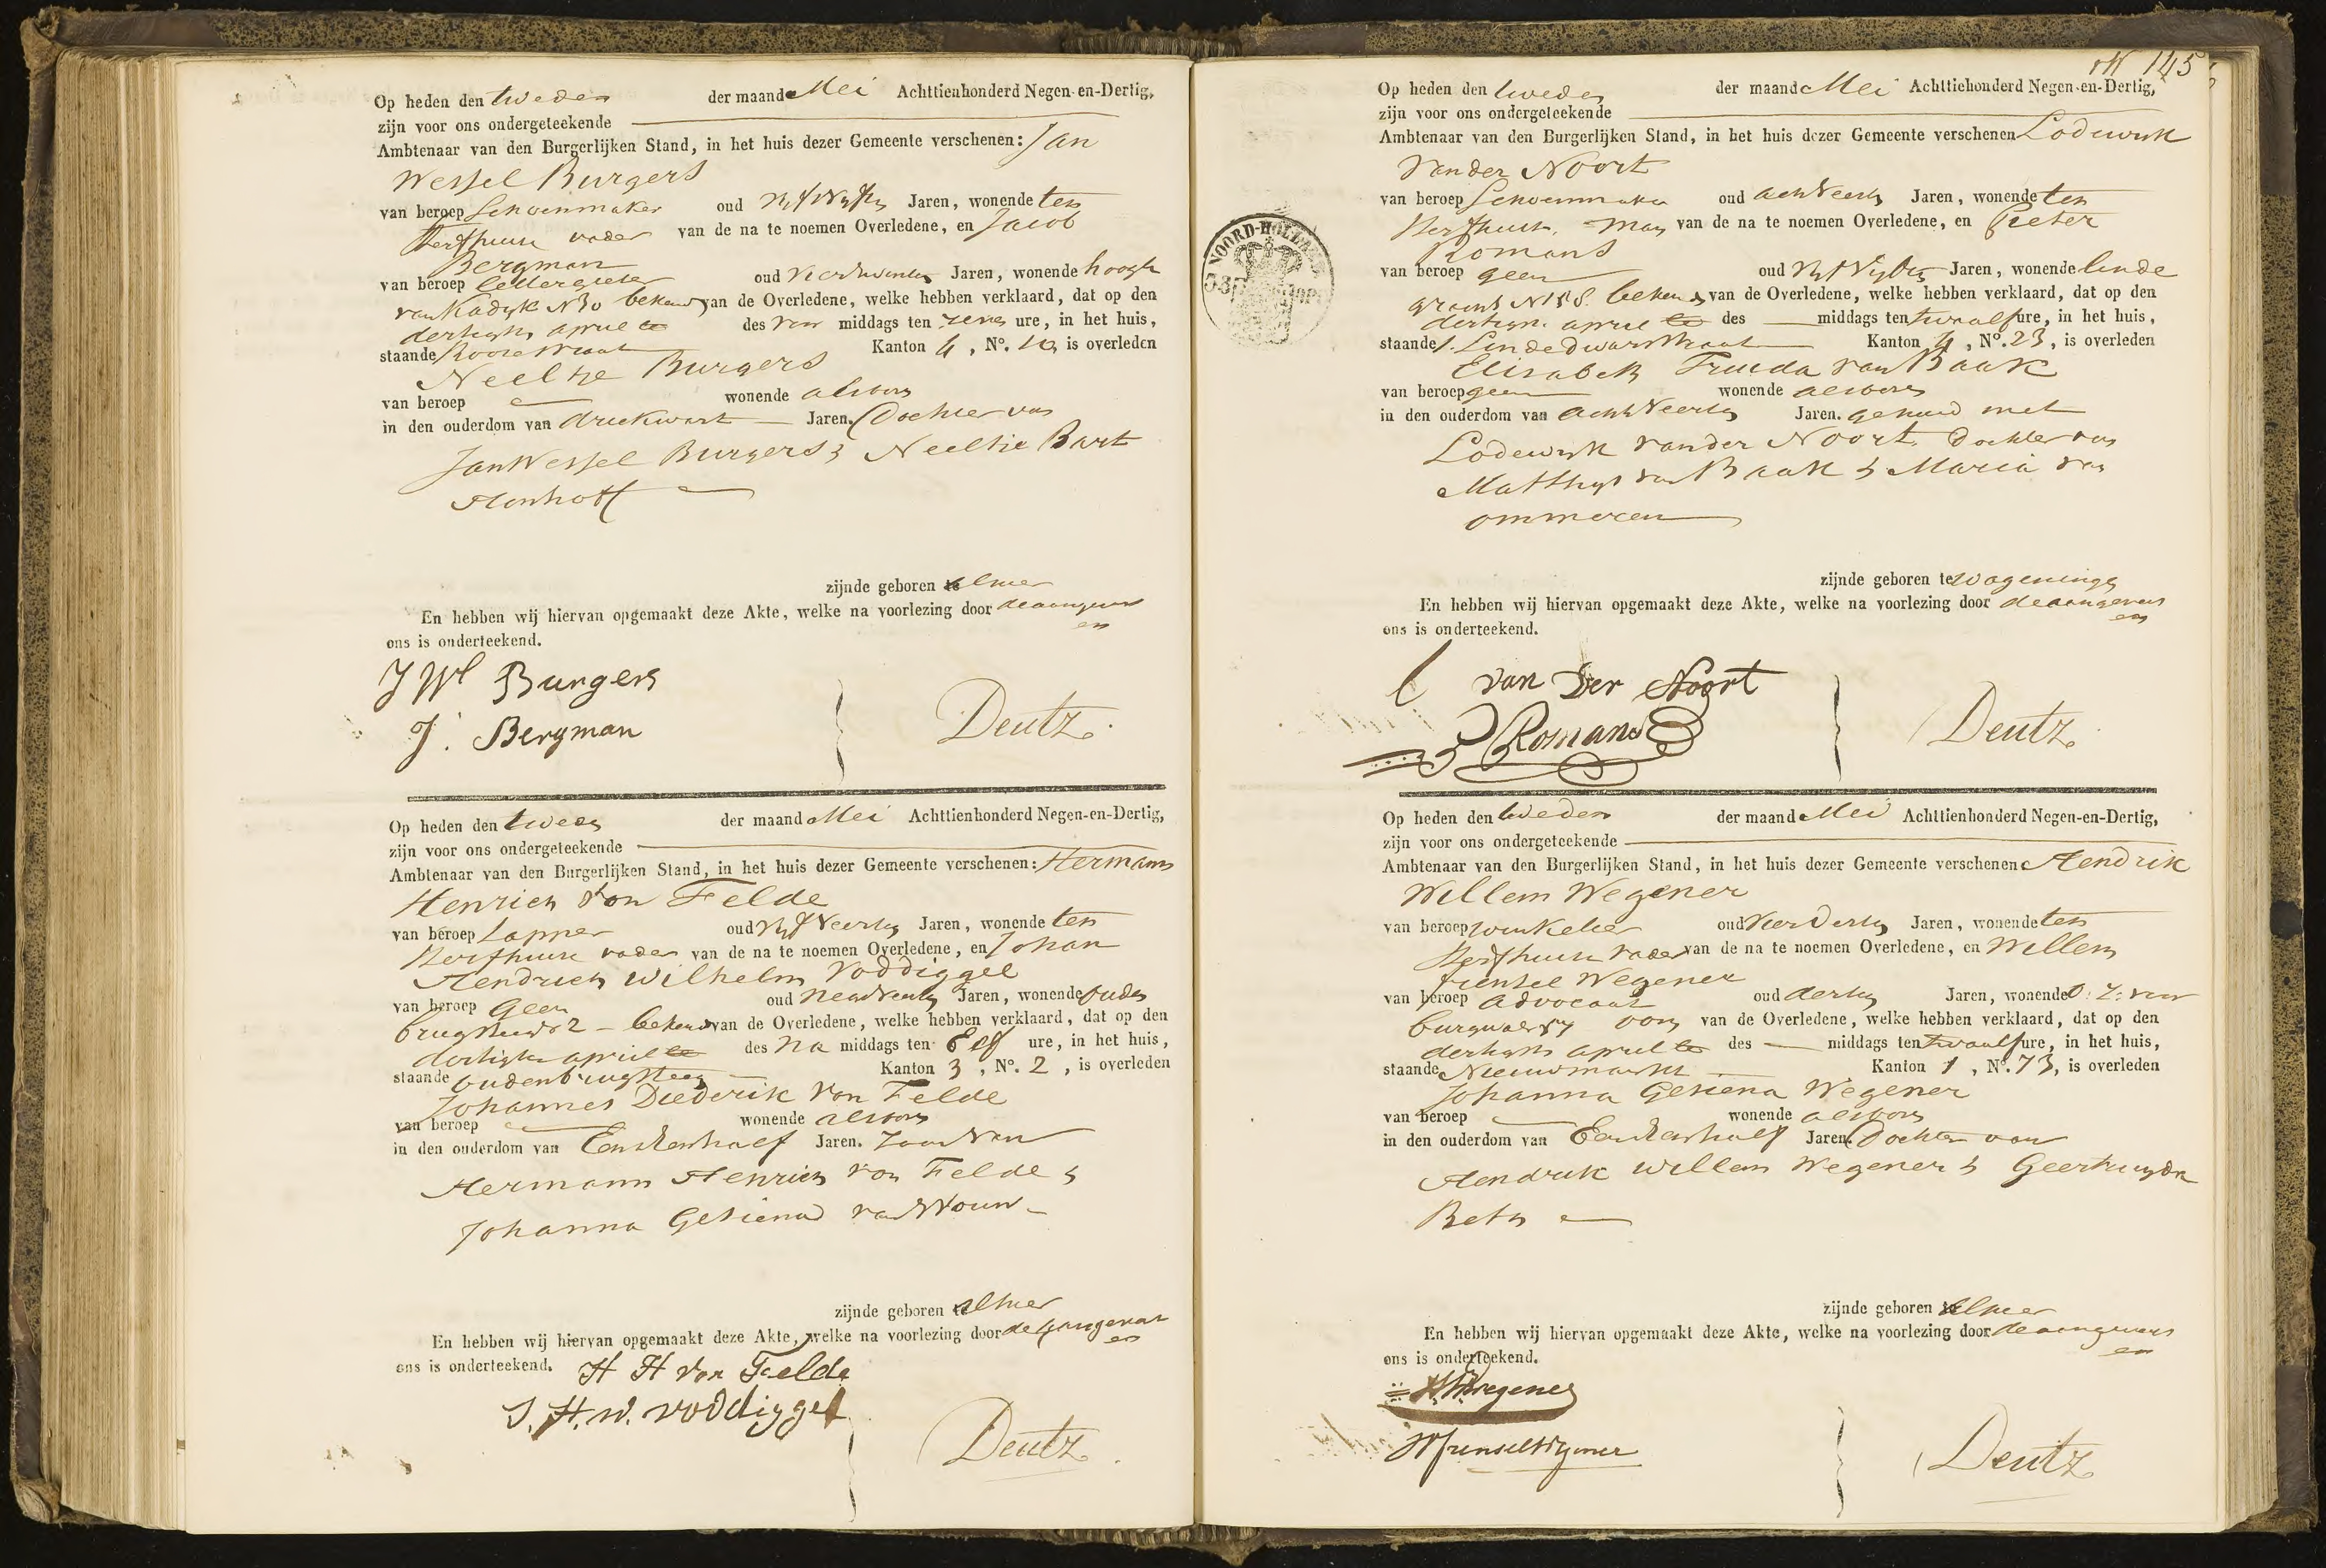 Op heden den tweeden der maand Mei Achttienhonderd Negen-en-Dertig,
zijn voor ons ondergeteekende
Ambtenaar van den Burgerlijken Stand, in het huis dezer Gemeente verschenen: Jan
Wessel Burgers
van beroep Schoenmaker oud Jaren, wonende ten
Sterfhuize vader van de na te noemen Overledene, en Jacob
Bergman
van beroep lettergieter oud Jaren, wonende hoogte
van Kadijk N 30 bekende van de Overledene, welke hebben verklaard, dat op den
dertigsten april des voor middags ten zeven ure, in het huis,
staande Kanton 4, No. is overleden
Neeltje Burgers
van beroep wonende alsvoren
in den ouderdom van driekwart Jaren. Dochter van
Jan Wessel Burgers & Neeltje Bart
zijnde geboren alhier
En hebben wij hiervan opgemaakt deze Akte, welke na voorlezing door de aangevers
en
ons is onderteekend.
J Wl Burgers
J. Bergman
Deutz.
Op heden den tweeden der maand Mei Achttienhonderd Negen-en-Dertig,
zijn voor ons ondergeteekende
Ambtenaar van den Burgerlijken Stand, in het huis dezer Gemeente verschenen: Hermann
Henrich von Felde
van beroep Tapper oud vijf Veertig Jaren, wonende ten
Sterfhuize vader van de na te noemen Overledene, en Johan
Hendrich Wilhelm Voddiggel
van beroep Geen oud Jaren, wonende ouden
brugsteeg 2 bekende van de Overledene, welke hebben verklaard, dat op den
dertigsten april des na middags ten Elf ure, in het huis,
staande oudenbrugsteeg Kanton 3, No. 2, is overleden
Johannes Diederik von Felde
van beroep wonende alsvoren
in den ouderdom van Een & een half Jaren. Zoon van
Hermann Henrich von Felde &
Johanna Gesiena
zijnde geboren alhier
En hebben wij hiervan opgemaakt deze Akte, welke na voorlezing door de aangevers
en
ons is onderteekend. H H von Felde
J. H. W. Voddiggel
Deutz
N 145
Op heden den tweeden der maand Mei Achttiehonderd Negen-en-Dertig,
zijn voor ons ondergeteekende
Ambtenaar van den Burgerlijken Stand, in het huis dezer Gemeente verschenen Lodewijk
van der Noort
van beroep Schoenmaker oud acht Veertig Jaren, wonende ten
Sterfhuize man van de na te noemen Overledene, en Pieter
Romans
van beroep geen oud Jaren, wonende linde
gracht N 158 bekende van de Overledene, welke hebben verklaard, dat op den
dertigsten april des middags ten twaalf ure, in het huis,
staande 1. Lindedwarsstraat Kanton 4, No. 23, is overleden
Elisabeth Truida van Baak
van beroep geen wonende alsvoren
in den ouderdom van acht Veertig Jaren. gehuwd met
Lodewijk van der Noort dochter van
Matthijs van Baak & Maria van
ommeren
zijnde geboren te wageningen
En hebben wij hiervan opgemaakt deze Akte, welke na voorlezing door de aangevers
en
ons is onderteekend.
NOORD-HOLLAND
L van der Noort
P Romans
Deutz.
Op heden den tweeden der maand Mei Achttienhonderd Negen-en-Dertig,
zijn voor ons ondergeteekende
Ambtenaar van den Burgerlijken Stand, in het huis dezer Gemeente verschenen Hendrik
Willem Wegener
van beroep winkelier oud vier Dertig Jaren, wonende ten
Sterfhuize vader van de na te noemen Overledene, en Willem
Wegener
van beroep advocaat oud dertig Jaren, wonende O: Z: voor
burgwal oom van de Overledene, welke hebben verklaard, dat op den
dertigsten april des middags ten twaalf ure, in het huis,
staande Nieuwmarkt Kanton 1, No. 73, is overleden
Johanna Gesiena Wegener
van beroep wonende alsvoren
in den ouderdom van Een & een half Jaren. Dochter van
Hendrik Willem Wegener & Geertruyda
zijnde geboren alhier
En hebben wij hiervan opgemaakt deze Akte, welke na voorlezing door de aangevers
en
ons is onderteekend.
H W Wegener
Deutz